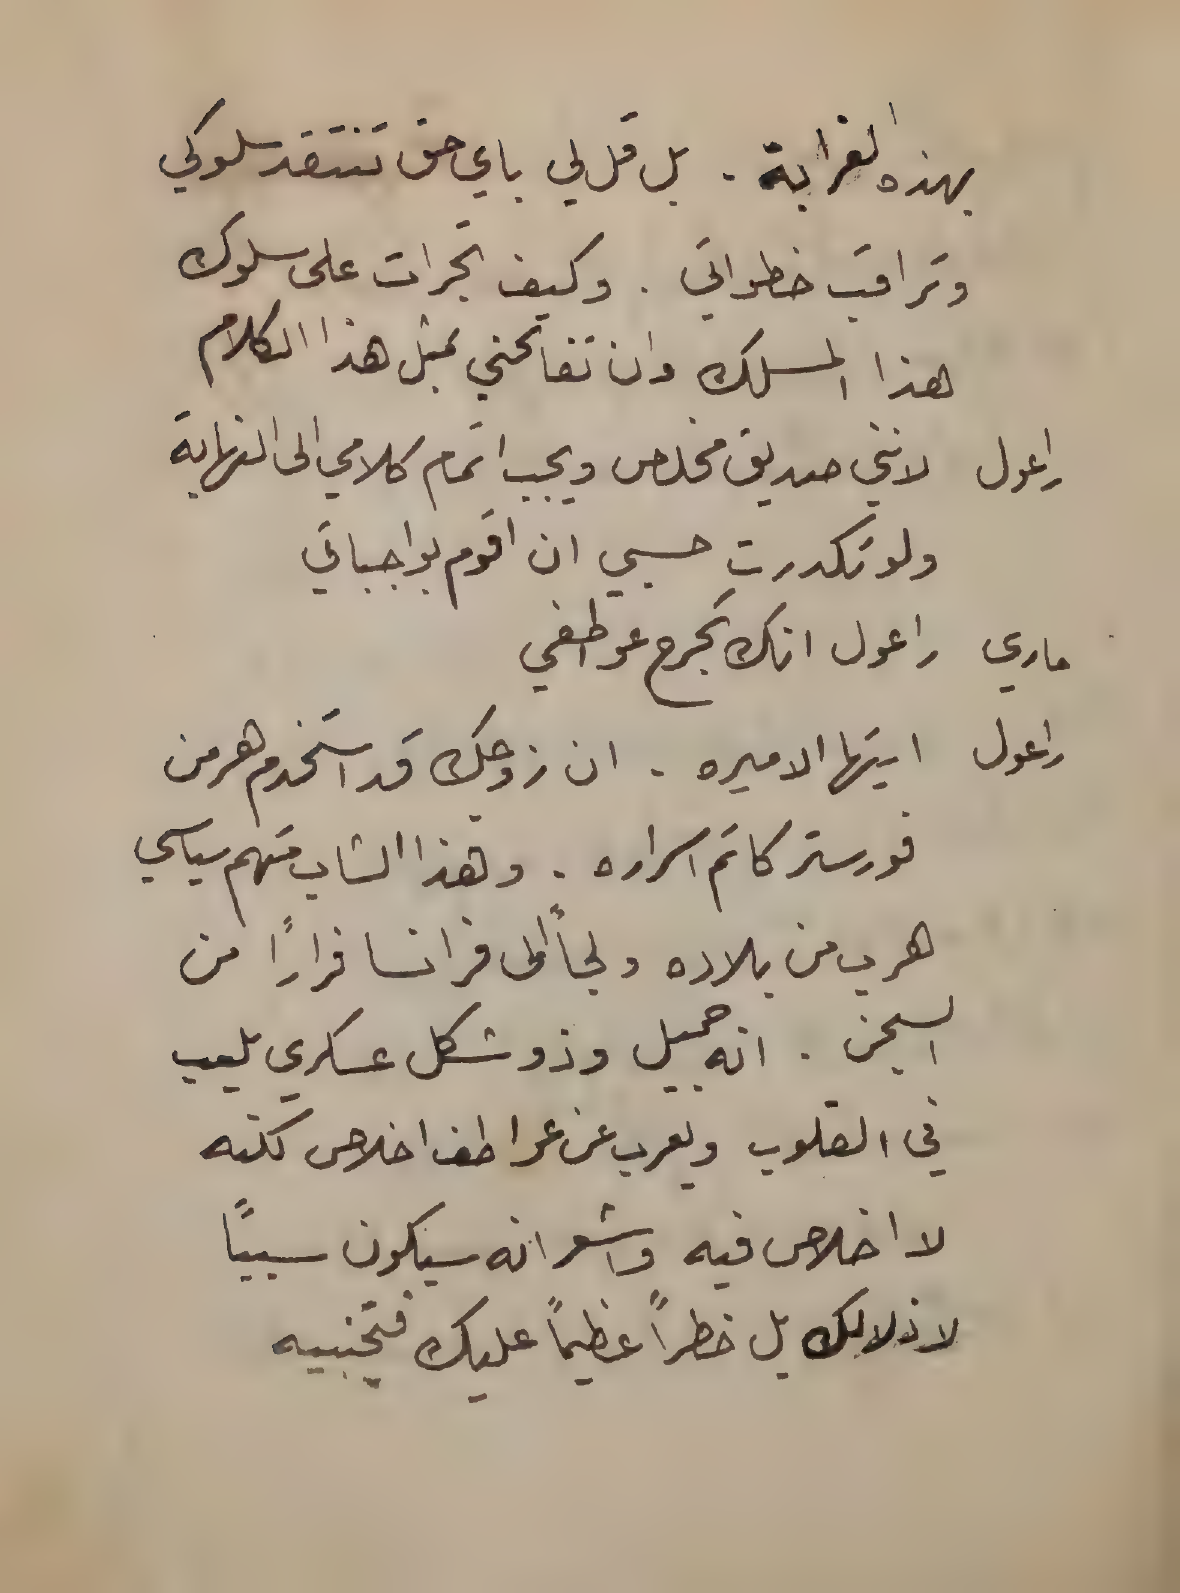 بهذه الغرابة . بل قل لي باي حق تنتقد سلوكي
وتراقب خطواتي . وكيف تجرات على سلوك
هذا المسلك وان تفاتحني بمثل هذا الكلام
راعول لانني صديق مخلص ويجب اتمام كلامي الى النهاية
ولو تكدرت حسبي ان اقوم بواجباتي
ماري راعول انك تجرح عواطفي
راعول ايتها الاميره . ان زوجك قد استخدم هرمن
فورستر كاتم اسراره . وهذا الشاب متهم سياسي
هرب من بلاده ولجأ الى فرانسا فرارًا من
السجن . انه جميل وذو شكل عسكري يلعب
في القلوب ويعرب عن عواطف اخلاص لكنه
لا اخلاص فيه واشعر انه سيكون سببًا
لاذلالك بل خطراً عظيماً عليك فتجنبيه